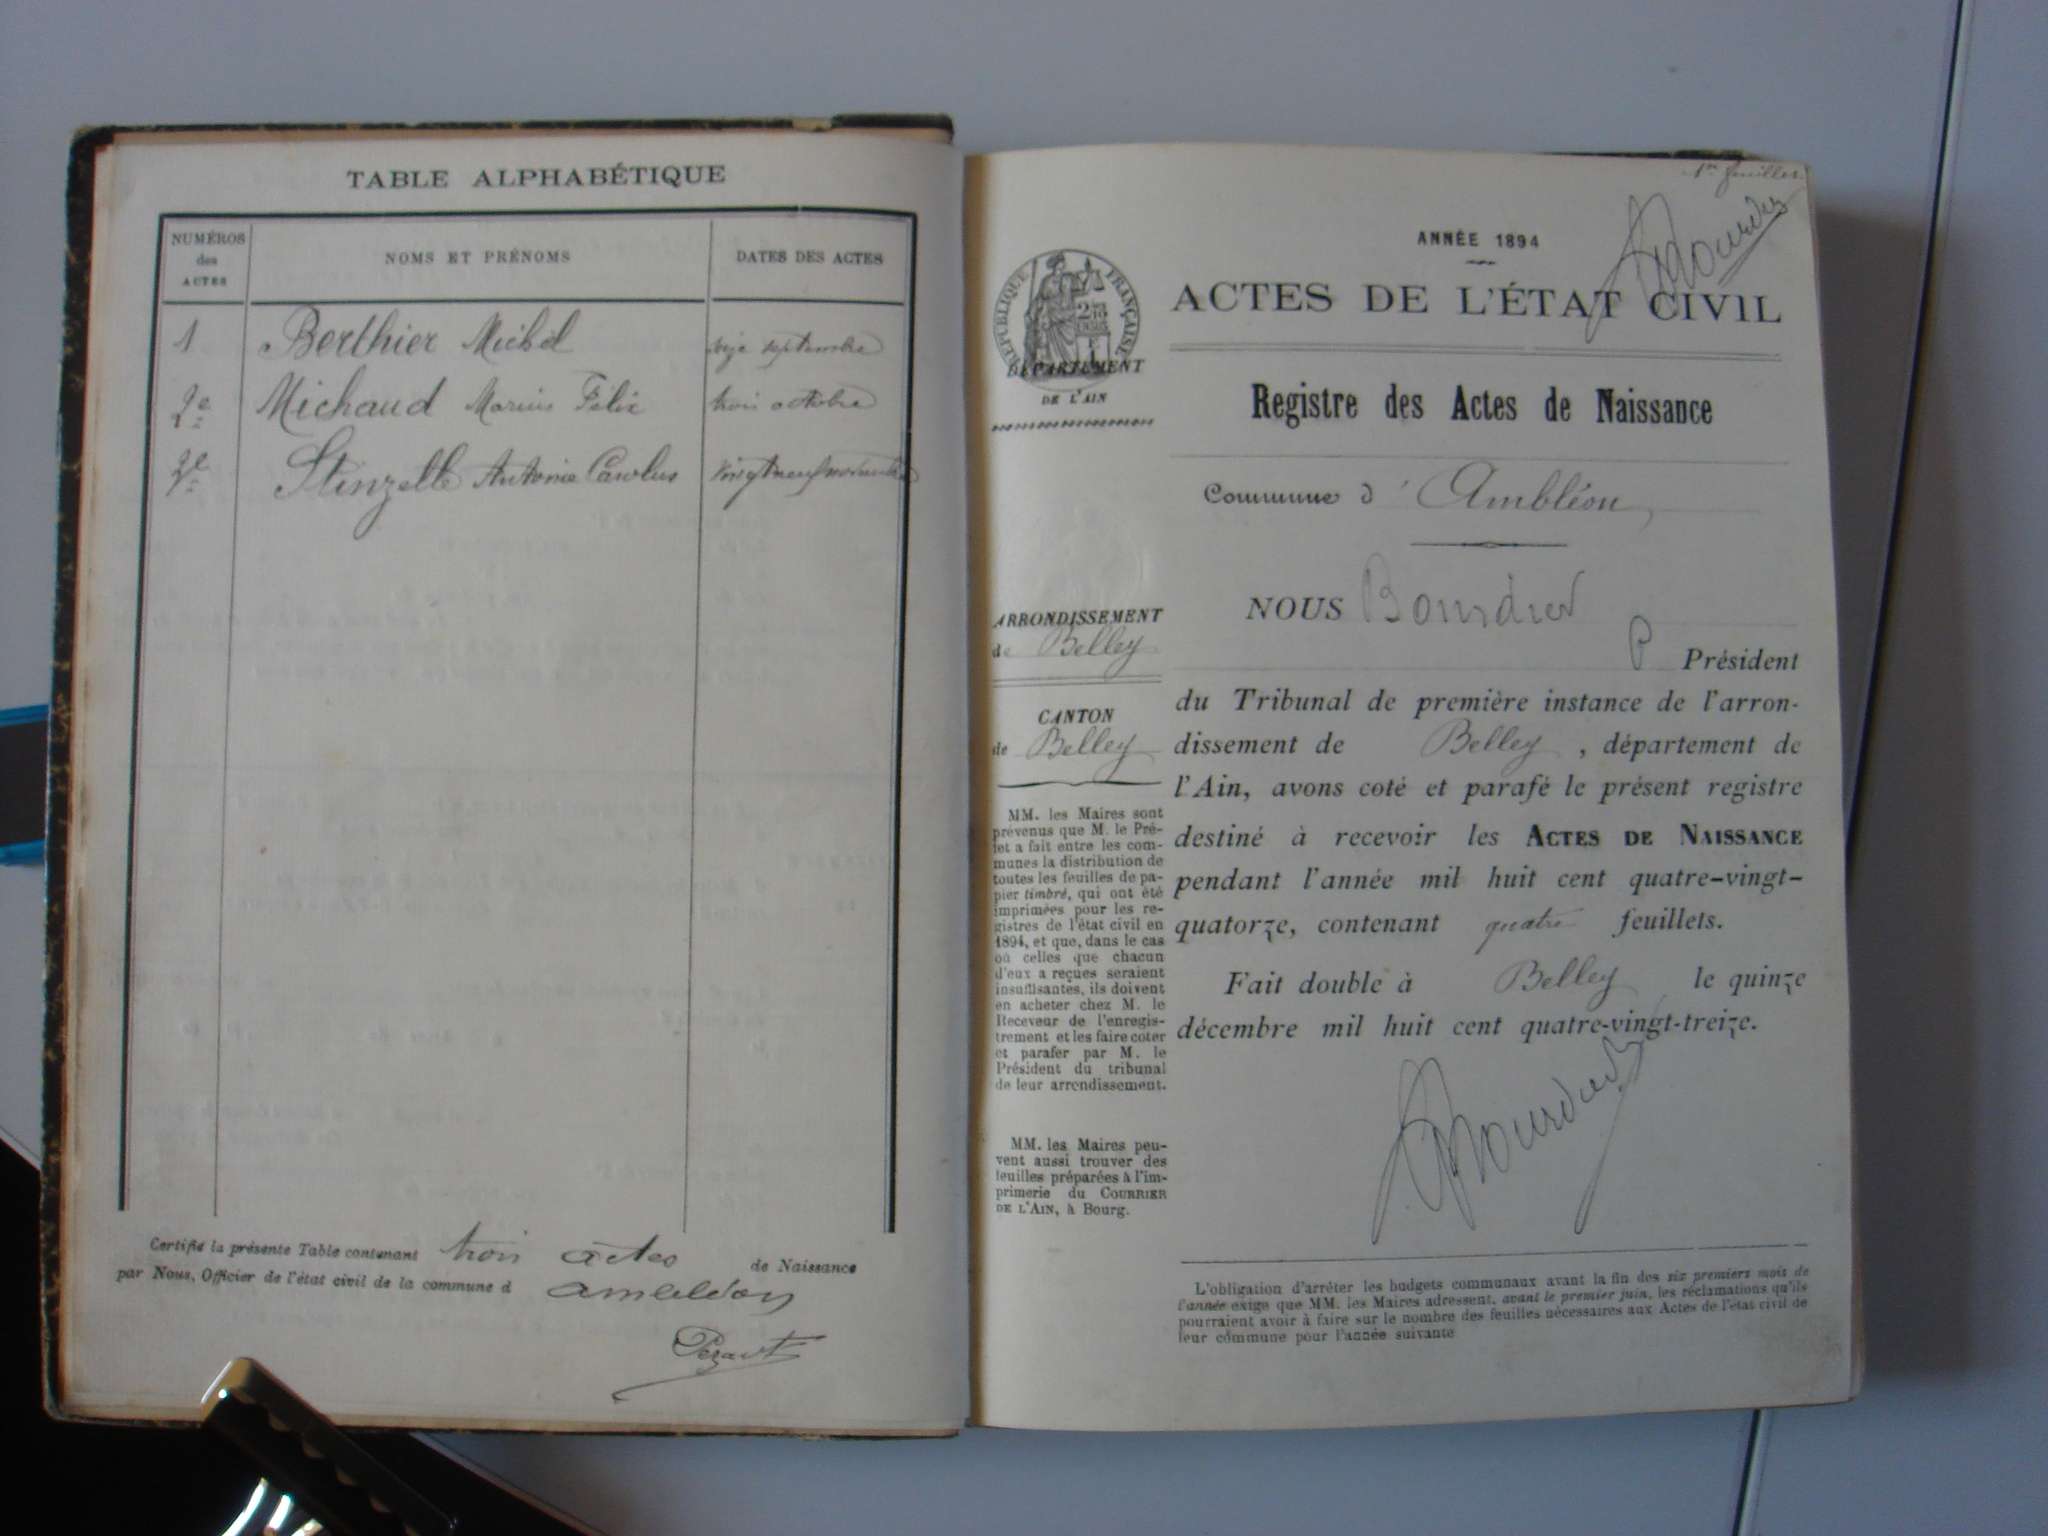 TABLE ALPHABÉTIQUE
NUMÉROS
des
ACTES
NOMS ET PRÉNOMS
DATES DES ACTES
1 Berthier Michel seize septembre
2e Michaud Marius Félix trois octobre
3e Stinzelle Antonia Carolus vingt neuf novembre
Certifié la présente Table contenant trois actes de Naissance
par Nous, Officier de l'état civil de la commune d ambléon
1er feuillet
ANNÉE 1894
ACTES DE L'ÉTAT CIVIL
RÉPUBLIQUE FRANÇAISE
DÉPARTEMENT
DE L'AIN
Registre des Actes de Naissance
Commune d' Ambléon
ARRONDISSEMENT
de Belley
CANTON
de Belley
MM. les Maires sont
prévenus que M. le Pré-
fet a fait entre les com-
munes la distribution de
toutes les feuilles de pa-
pier timbré, qui ont été
imprimées pour les re-
gistres de l'état civil en
1894, et que, dans le cas
où celles que chacun
d'eux a reçues seraient
insuffisantes, ils doivent
en acheter chez M. le
Receveur de l'enregis-
trement et les faire coter
et parafer par M. le
Président du tribunal
de leur arrondissement.
MM. les Maires peu-
vent aussi trouver des
feuilles préparées à l'im-
primerie du COURRIER
DE L'AIN, à Bourg.
NOUS Bourdier
P Président
du Tribunal de première instance de l'arron-
dissement de Belley, département de
l'Ain, avons coté et parafé le présent registre
destiné à recevoir les ACTES DE NAISSANCE
pendant l'année mil huit cent quatre-vingt-
quatorze, contenant quatre feuillets.
Fait double à Belley le quinze
décembre mil huit cent quatre-vingt-treize.
L'obligation d'arrêter les budgets communaux avant la fin des six premiers mois de
l'année exige que MM. les Maires adressent, avant le premier juin, les réclamations qu'ils
pourraient avoir à faire sur le nombre des feuilles nécessaires aux Actes de l'état civil de
leur commune pour l'année suivante